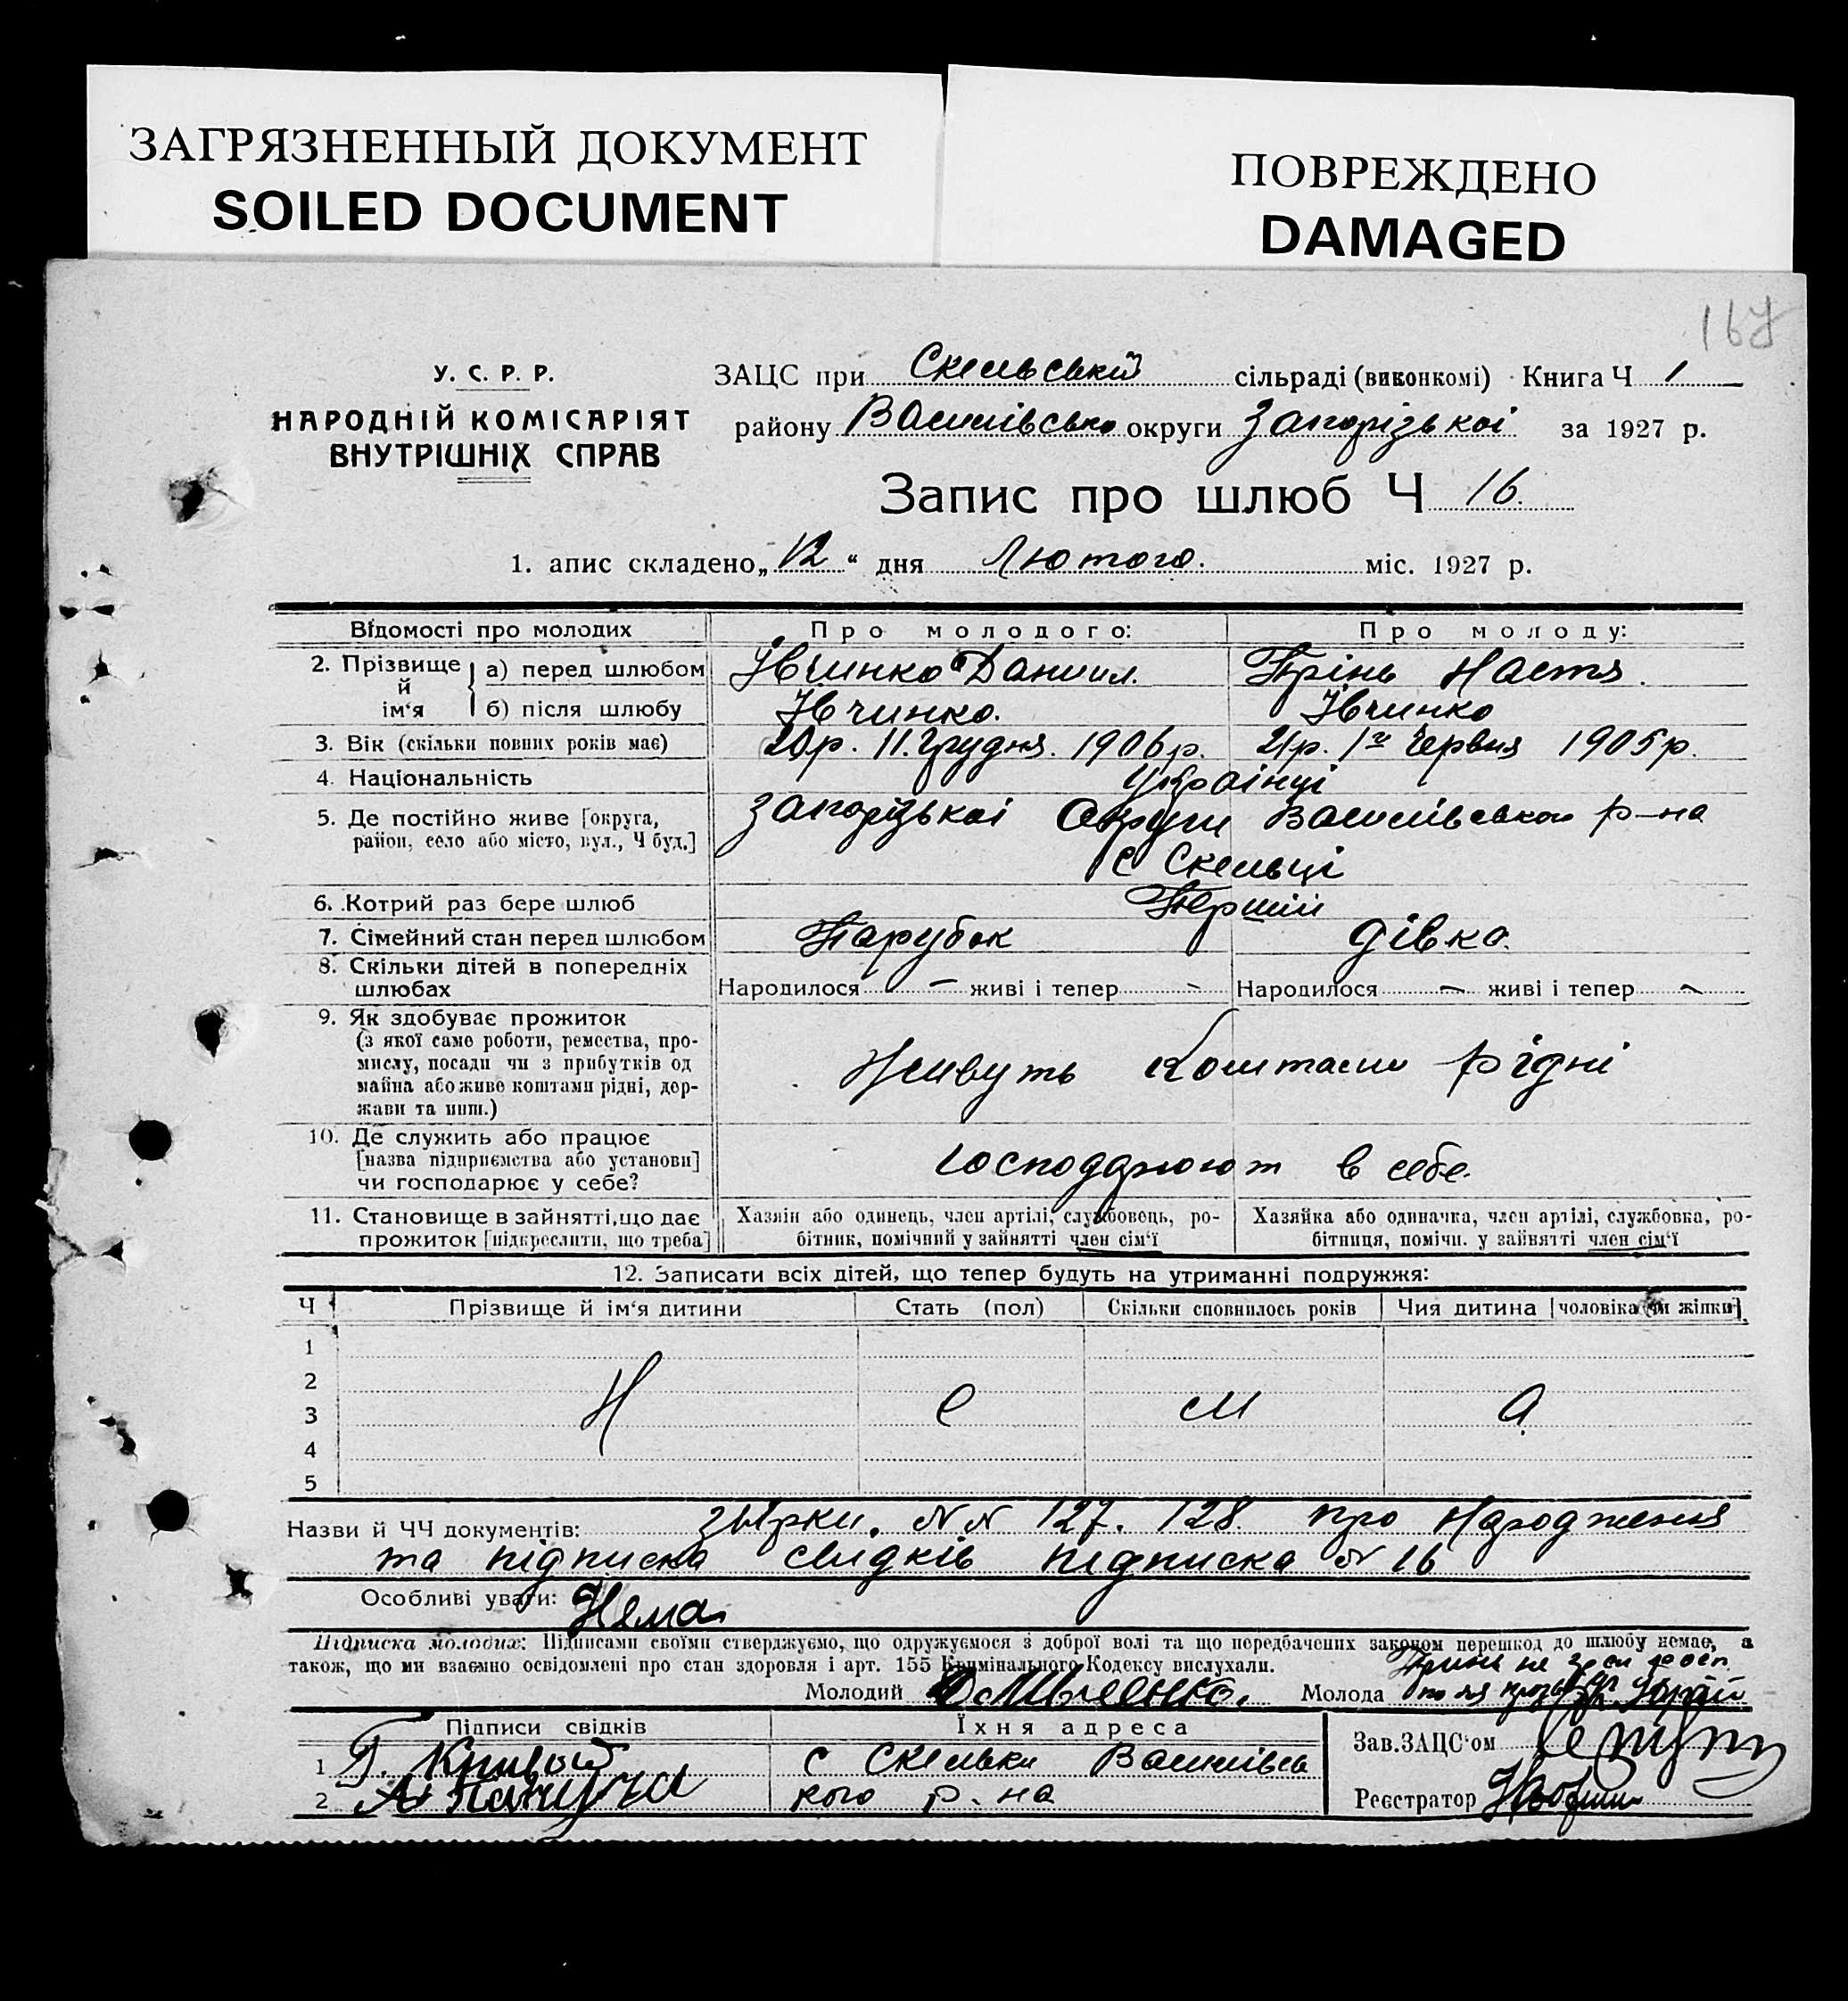 ЗАГРЯЗНЕННЫЙ ДОКУМЕНТ
SOILED DOCUMENT
ПОВРЕЖДЕНО
DAMAGED
167
У. С. Р. Р.
НАРОДНІЙ КОМІСАРІЯТ
ВНУТРІШНІХ СПРАВ
ЗАЦС при Скельській сільраді (виконкомі) Книга Ч 1
району Василівсько округи Запорізької за 1927 р.
Запис про шлюб Ч 16.
1. апис складено „12“ дня Лютого. міс. 1927 р.
Відомості про молодих
Про молодого:
Про молоду:
2. Прізвище й ім'я
а) перед шлюбом Івчинко Даниил. Грінь Настя.
б) після шлюбу Івчинко. Івчинко
3. Вік (скільки повних років має) 20р. 11. Грудня. 1906р. 21р. 1го Червня 1905р.
4. Національність Українці
5. Де постійно живе [округа, Запорізької Округи Василівського р-на
район, село або місто, вул., Ч буд.]
с Скельці
6. Котрий раз бере шлюб Перший
7. Сімейний стан перед шлюбом Парубок дівка.
8. Скільки дітей в попередніх
шлюбах Народилося — живі і тепер - Народилося — живі і тепер -
9. Як здобуває прожиток
(з якої саме роботи, ремества, про-
мислу, посади чи з прибутків од Живуть Коштами рідні
майна або живе коштами рідні, дер-
жави та инш.)
10. Де служить або працює
[назва підприємства або установи] господарюют в себе.
чи господарює у себе?
11. Становище в зайнятті, що дає
прожиток [підкреслити, що треба]
Хазяїн або одинець, член артілі, службовець, ро-
бітник, помічний у зайнятті член сім'ї
Хазяйка або одиначка, член артілі, службовка, ро-
бітниця, помічн. у зайнятті член сім'ї
12. Записати всіх дітей, що тепер будуть на утриманні подружжя:
Ч Прізвище й ім'я дитини Стать (пол) Скільки сповнилось років Чия дитина [чоловіка чи жінки]
1
2
3 Н е м а
4
5
Назви й ЧЧ документів: № № 127. 128. про Народження
та підписка свидків підписка № 16
Особливі уваги: Нема
Підписка молодих: Підписами своїми стверджуємо, що одружуємося з доброї волі та що передбачених законом перешкод до шлюбу немає, а
також, що ми взаємно освідомлені про стан здоровля і арт. 155 Кримінального Кодексу вислухали.
Молодий Молода
Підписи свідків
Їхня адреса
1 Г. Кривый с Скельки Василівсь
2 кого р. на
Зав. ЗАЦС'ом
Реєстратор